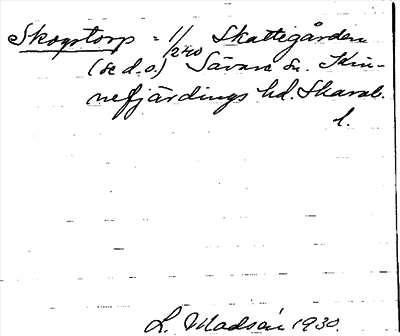 Skogstorp = 1/240 Skattegården
(se d.o.) Sävare sn. Kin-
nefjärdings hd. Skarab.
l.
L. Madsén 1930.